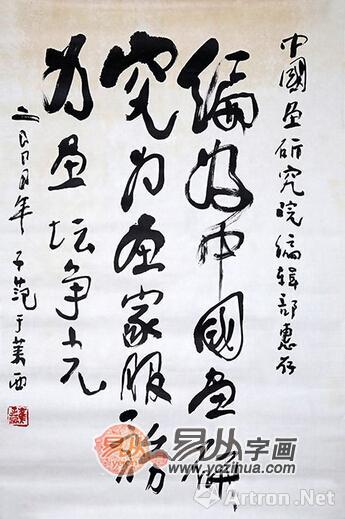 中國画研究院编辑部惠存
编好中國画研
究为画家服务
为画坛争光
年 子范于莱西
易从字画
www.yczihua.com
Artron.Net